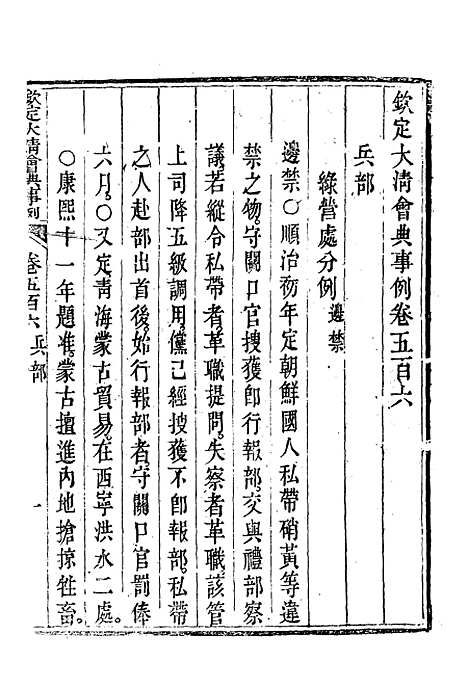 欽定大淸會典事例卷五百六
兵部
綠營處分例 邊禁
邊禁○順治初年定朝鮮國人私帶硝黃等違
禁之物守關口官搜獲卽行報部交與禮部察
議若縱令私帶者革職提問失察者革職該管
上司降五級調用儻已經搜獲不卽報部私帶
之人赴部出首後始行報部者守關口官罰俸
六月○又定靑海蒙古貿易在西寧洪水二處
○康熙十一年題准蒙古擅進內地搶掠牲畜
欽定大淸會典事例 卷五百六 兵部 一